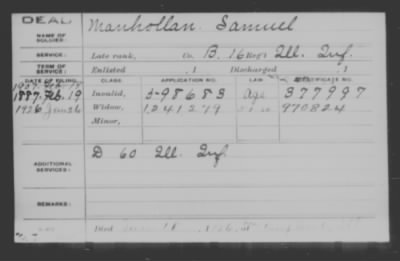 DEAD
NAME OF SOLDIER: Manhollan Samuel
SERVICE: Late rank, Co. B, 16 Reg't Ill. Inf.
TERM OF SERVICE: Enlisted , 1 Discharged , 1
DATE OF FILING. CLASS. APPLICATION NO. LAW. CERTIFICATE NO.
1887 Feb. 19 Invalid, 598683 Age 377997
1926 June 26 Widow, 1241279 970824
Minor,
ADDITIONAL SERVICES: D 60 Ill. Inf.
REMARKS:
Died 1926, at